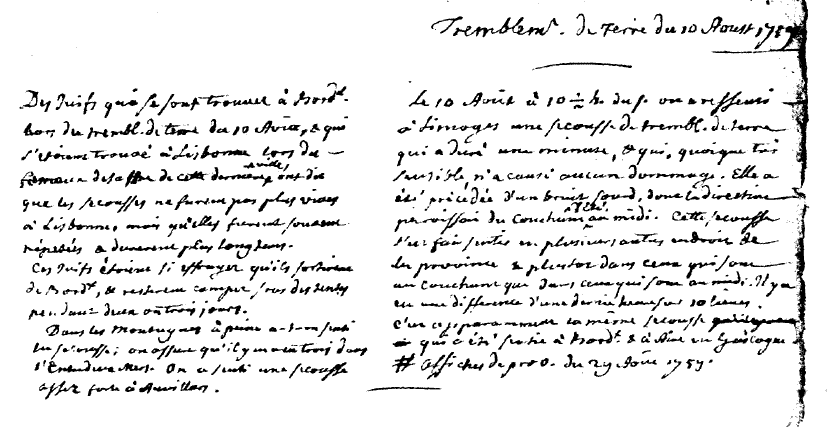 Tremblem.t de Terre du 10 Aoust 1759
Des Juifs qui se sont trouvez à Bord.x
lors du trembl. de terre du 10 Aoûst, & qui
s'étoient trouvé à Lisbonne lors du
fameux desastre de cette derniere ville, ont dit
que les secousses ne furent pas plus vives
à Lisbonne, mais qu'elles furent souvent
répétées & durerent plus longtems.
Ces Juifs étoient si effrayez qu'ils sortirent
de Bord.x, & resterent campez sous des tentes
pendant deux ou trois jours.
Dans les Montagnes à peine a-t-on senti
la secousse; on assure qu'il y en a eu trois dans
l'Entre deux Mers. On a senti une secousse
assez forte à Auvillar.
Le 10 Août à 10 1/2 h. du s. on a ressenti
à Limoges une secousse de trembl. de terre
qui a duré une minute, & qui, quoique très
sensible n'a causé aucun dommage. Elle a
été précédée d'un bruit sourd, dont la direction
paroissoit du Couchant au midi. Cette secousse
s'est fait sentir en plusieurs autres endroits de
la province & plustot dans ceux qui sont
au Couchant que dans ceux qui sont au midi. Il y a
eu une difference d'une demi heure sur 10 lieues.
C'est apparemment la même secousse
qui a été sentie à Bord.x & à Aire en Gascogne
# Affiches de prov. du 29 Août 1759.